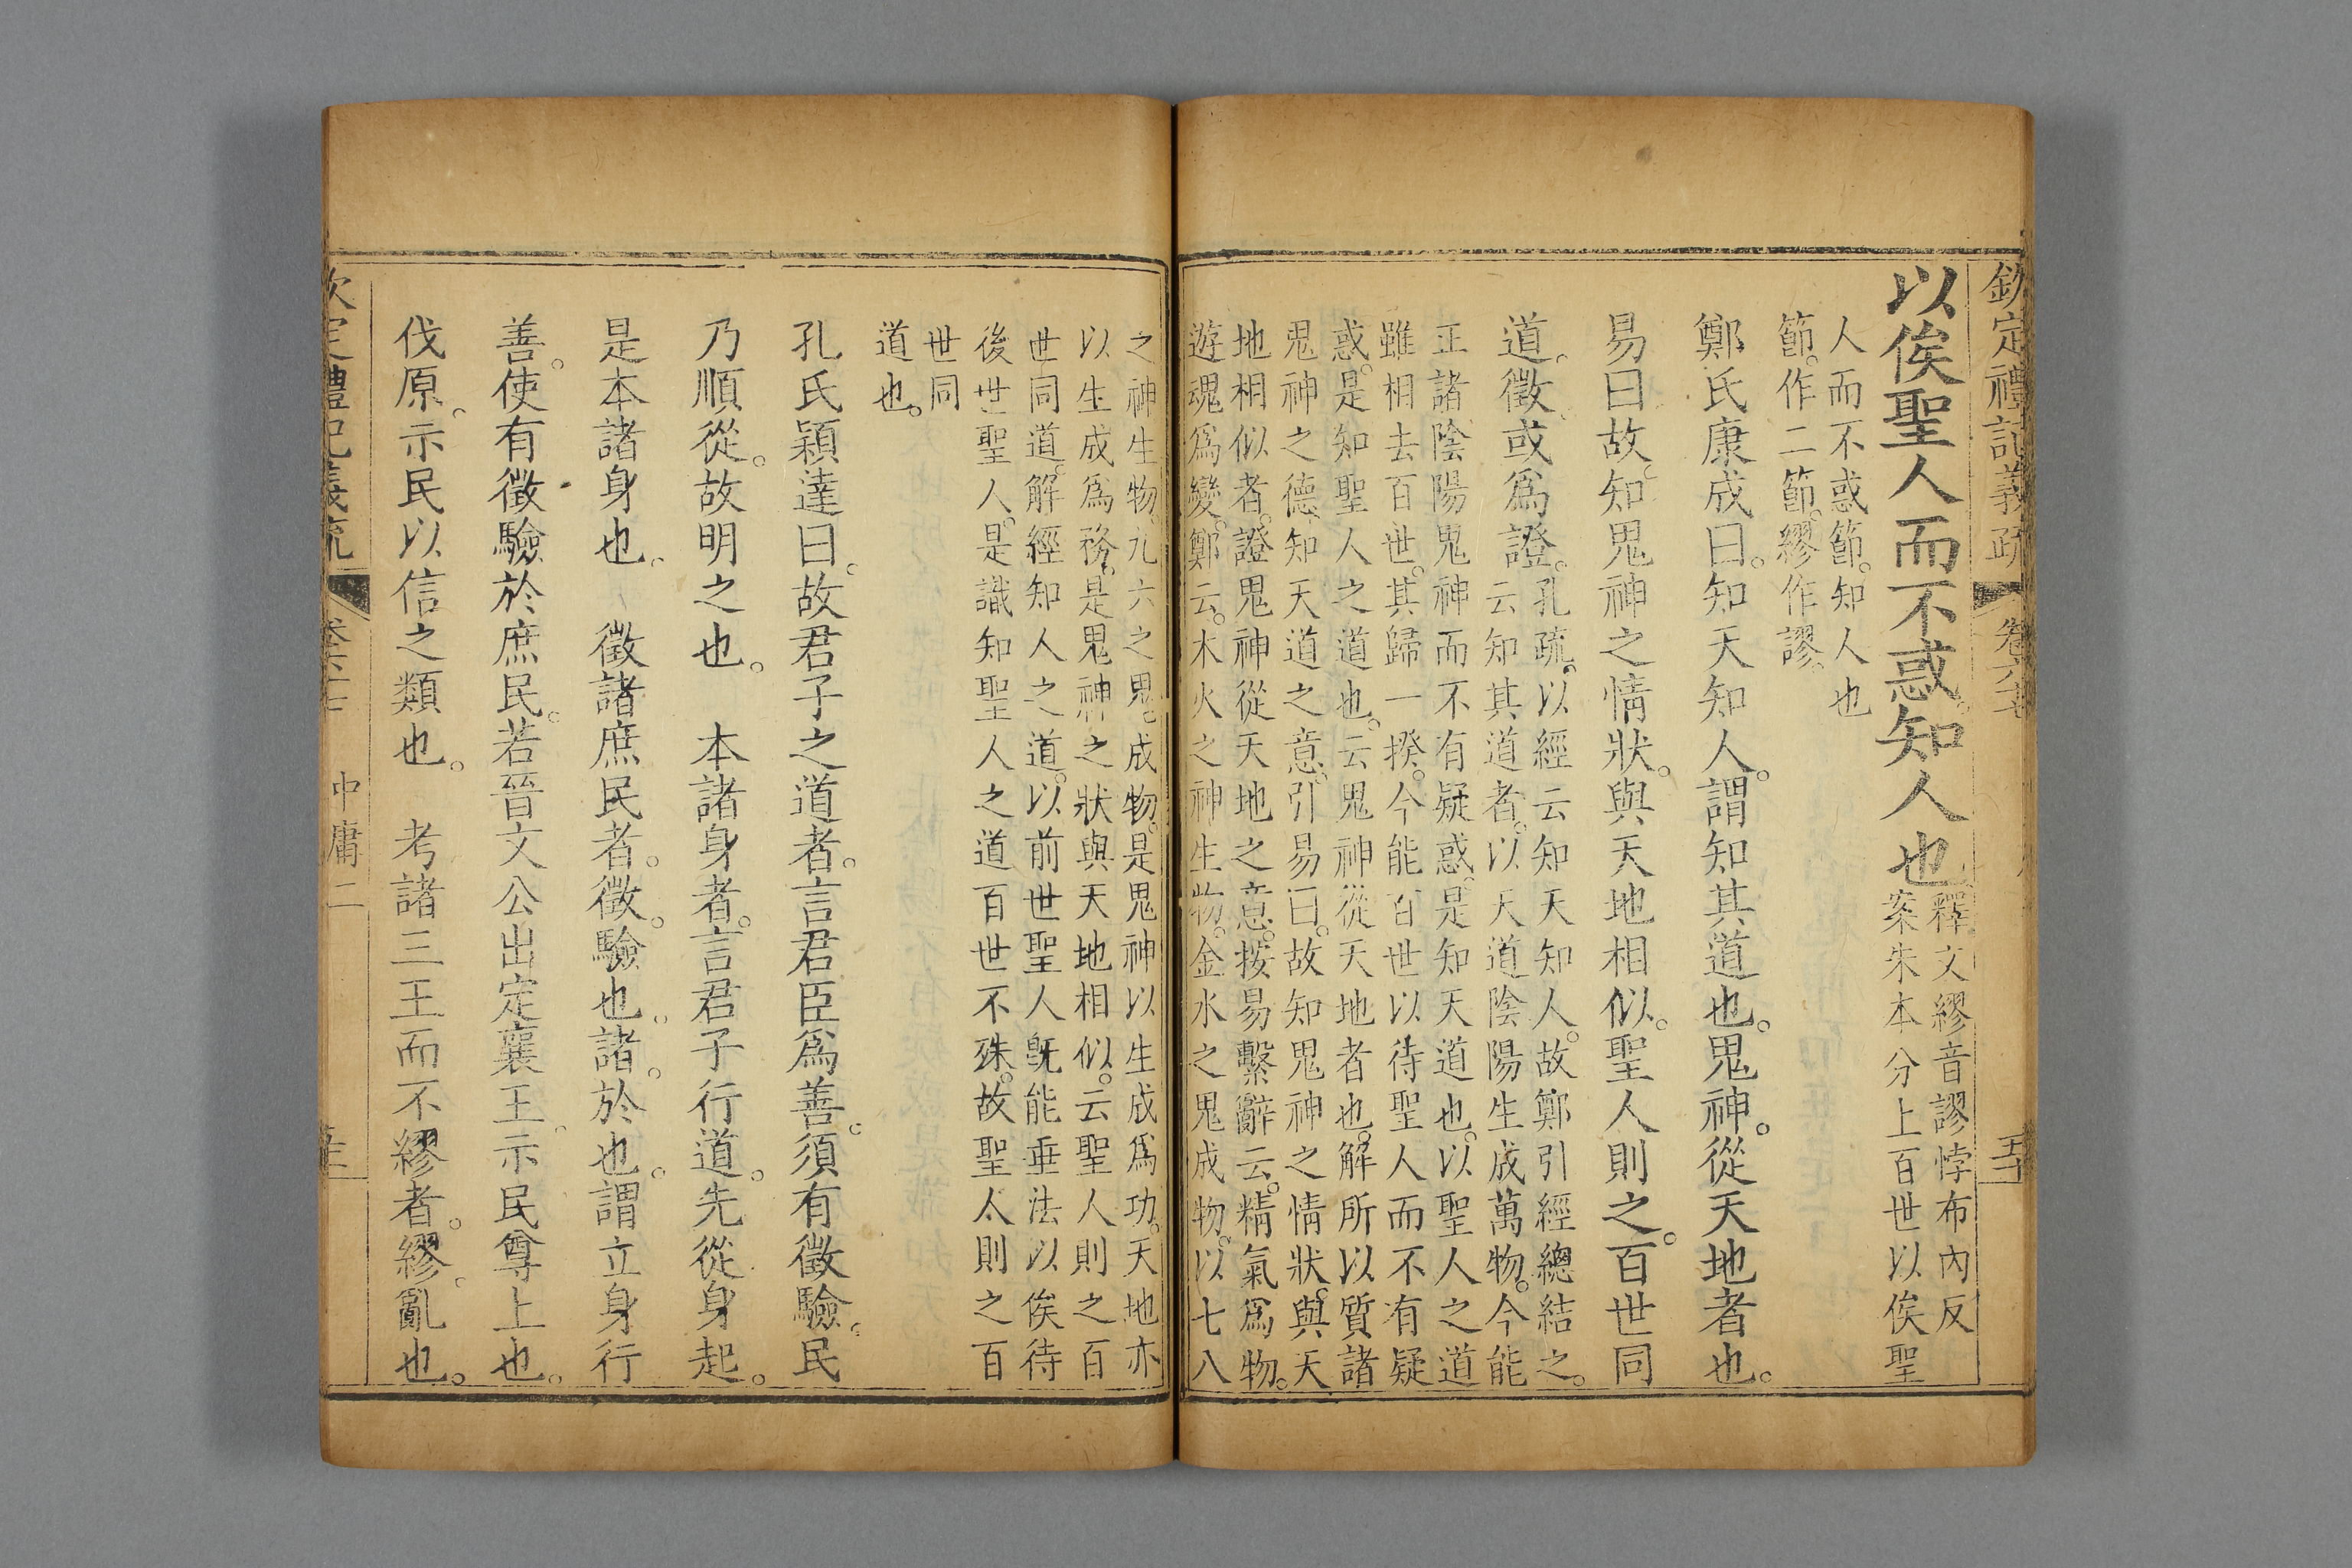 欽定禮記義疏 卷六十七
以俟聖人而不惑知人也
釋文繆音謬悖布內反
案朱本分上百世以俟聖
人而不惑節知人也
節作二節繆作謬
鄭氏康成曰知天知人謂知其道也鬼神從天地者也
易曰故知鬼神之情狀與天地相似聖人則之百世同
道徵或爲證
孔疏以經云知天知人故鄭引經總結之
云知其道者以天道陰陽生成萬物今能
正諸陰陽鬼神而不有疑惑是知天道也以聖人之道
雖相去百世其歸一揆今能百世以待聖人而不有疑
惑是知聖人之道也云鬼神從天地者也解所以質諸
鬼神之德知天道之意引易曰故知鬼神之情狀與天
地相似者證鬼神從天地之意按易繫辭云精氣爲物
遊魂爲變鄭云木火之神生物金水之鬼成物以七八
之神生物九六之鬼成物是鬼神以生成爲功天地亦
以生成爲務是鬼神之狀與天地相似云聖人則之百
世同道解經知人之道以前世聖人旣能垂法以俟待
後世聖人是識知聖人之道百世不殊故聖人則之百
世同
道也
孔氏穎達曰故君子之道者言君臣爲善須有徵驗民
乃順從故明之也 本諸身者言君子行道先從身起
是本諸身也 徵諸庶民者徵驗也諸於也謂立身行
善使有徵驗於庶民若晉文公出定襄王示民尊上也
伐原示民以信之類也 考諸三王而不繆者繆亂也
欽定禮記義疏 卷六十七 中庸二